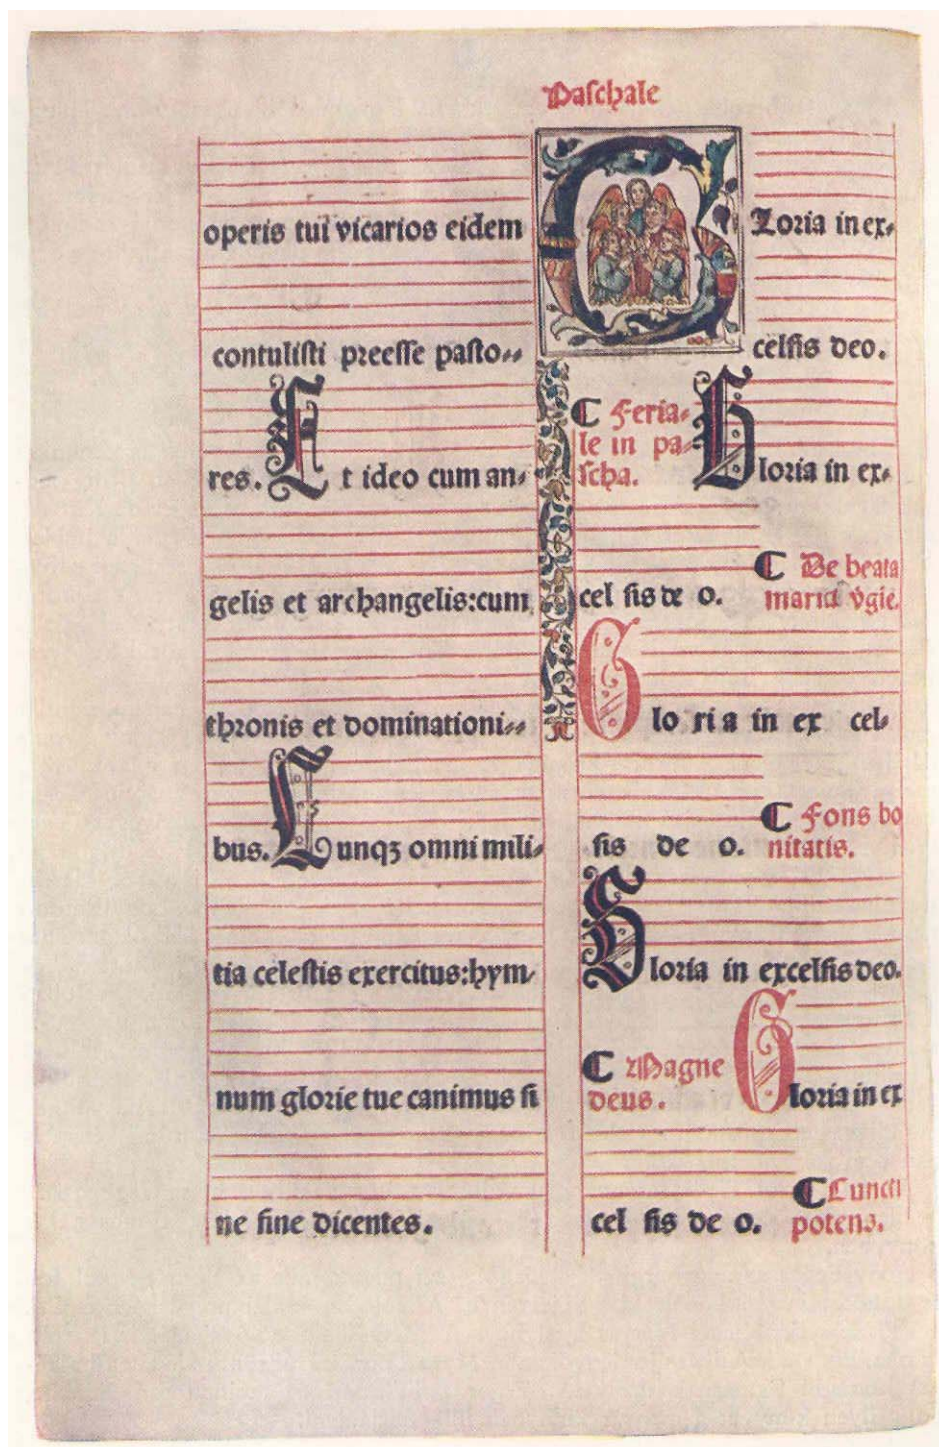 Paschale
operis tui vicarios eidem
contulisti preesse pasto⸗
res. Et ideo cum an⸗
gelis et archangelis:cum
thronis et dominationi⸗
bus. Cunqꝫ omni mili⸗
tia celestis exercitus:hym⸗
num glorie tue canimus si
ne fine dicentes.
GLoria in ex⸗
celsis deo.
C Feria⸗
le in pa⸗
scha.
Gloria in ex⸗
cel sis de o.
C De beata
maria v̄gie.
Glo ri a in ex cel⸗
sis de o.
C Fons bo
nitatis.
Gloria in excelsis deo.
C Magne
deus.
Gloria in ex
cel sis de o.
C Cuncti
potens.